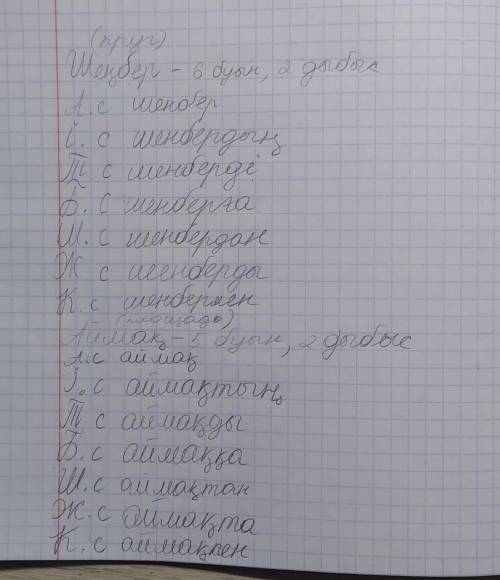 (круг)
Шеңбер - 6 буын, 2 дыбыс
А. с шенбер
І. с шенбердың
Т с шенберді
Б. с шенберға
Ш. с шенбердан
Ж с шенберды
К. с шенбермен
(площадь)
Аймақ - 5 буын, 2 дыбыс
А. с аймақ
І. с аймақтың
Т с аймақды
Б. с аймаққа
Ш. с аймақтан
Ж. с аймақта
К. с аймақпен